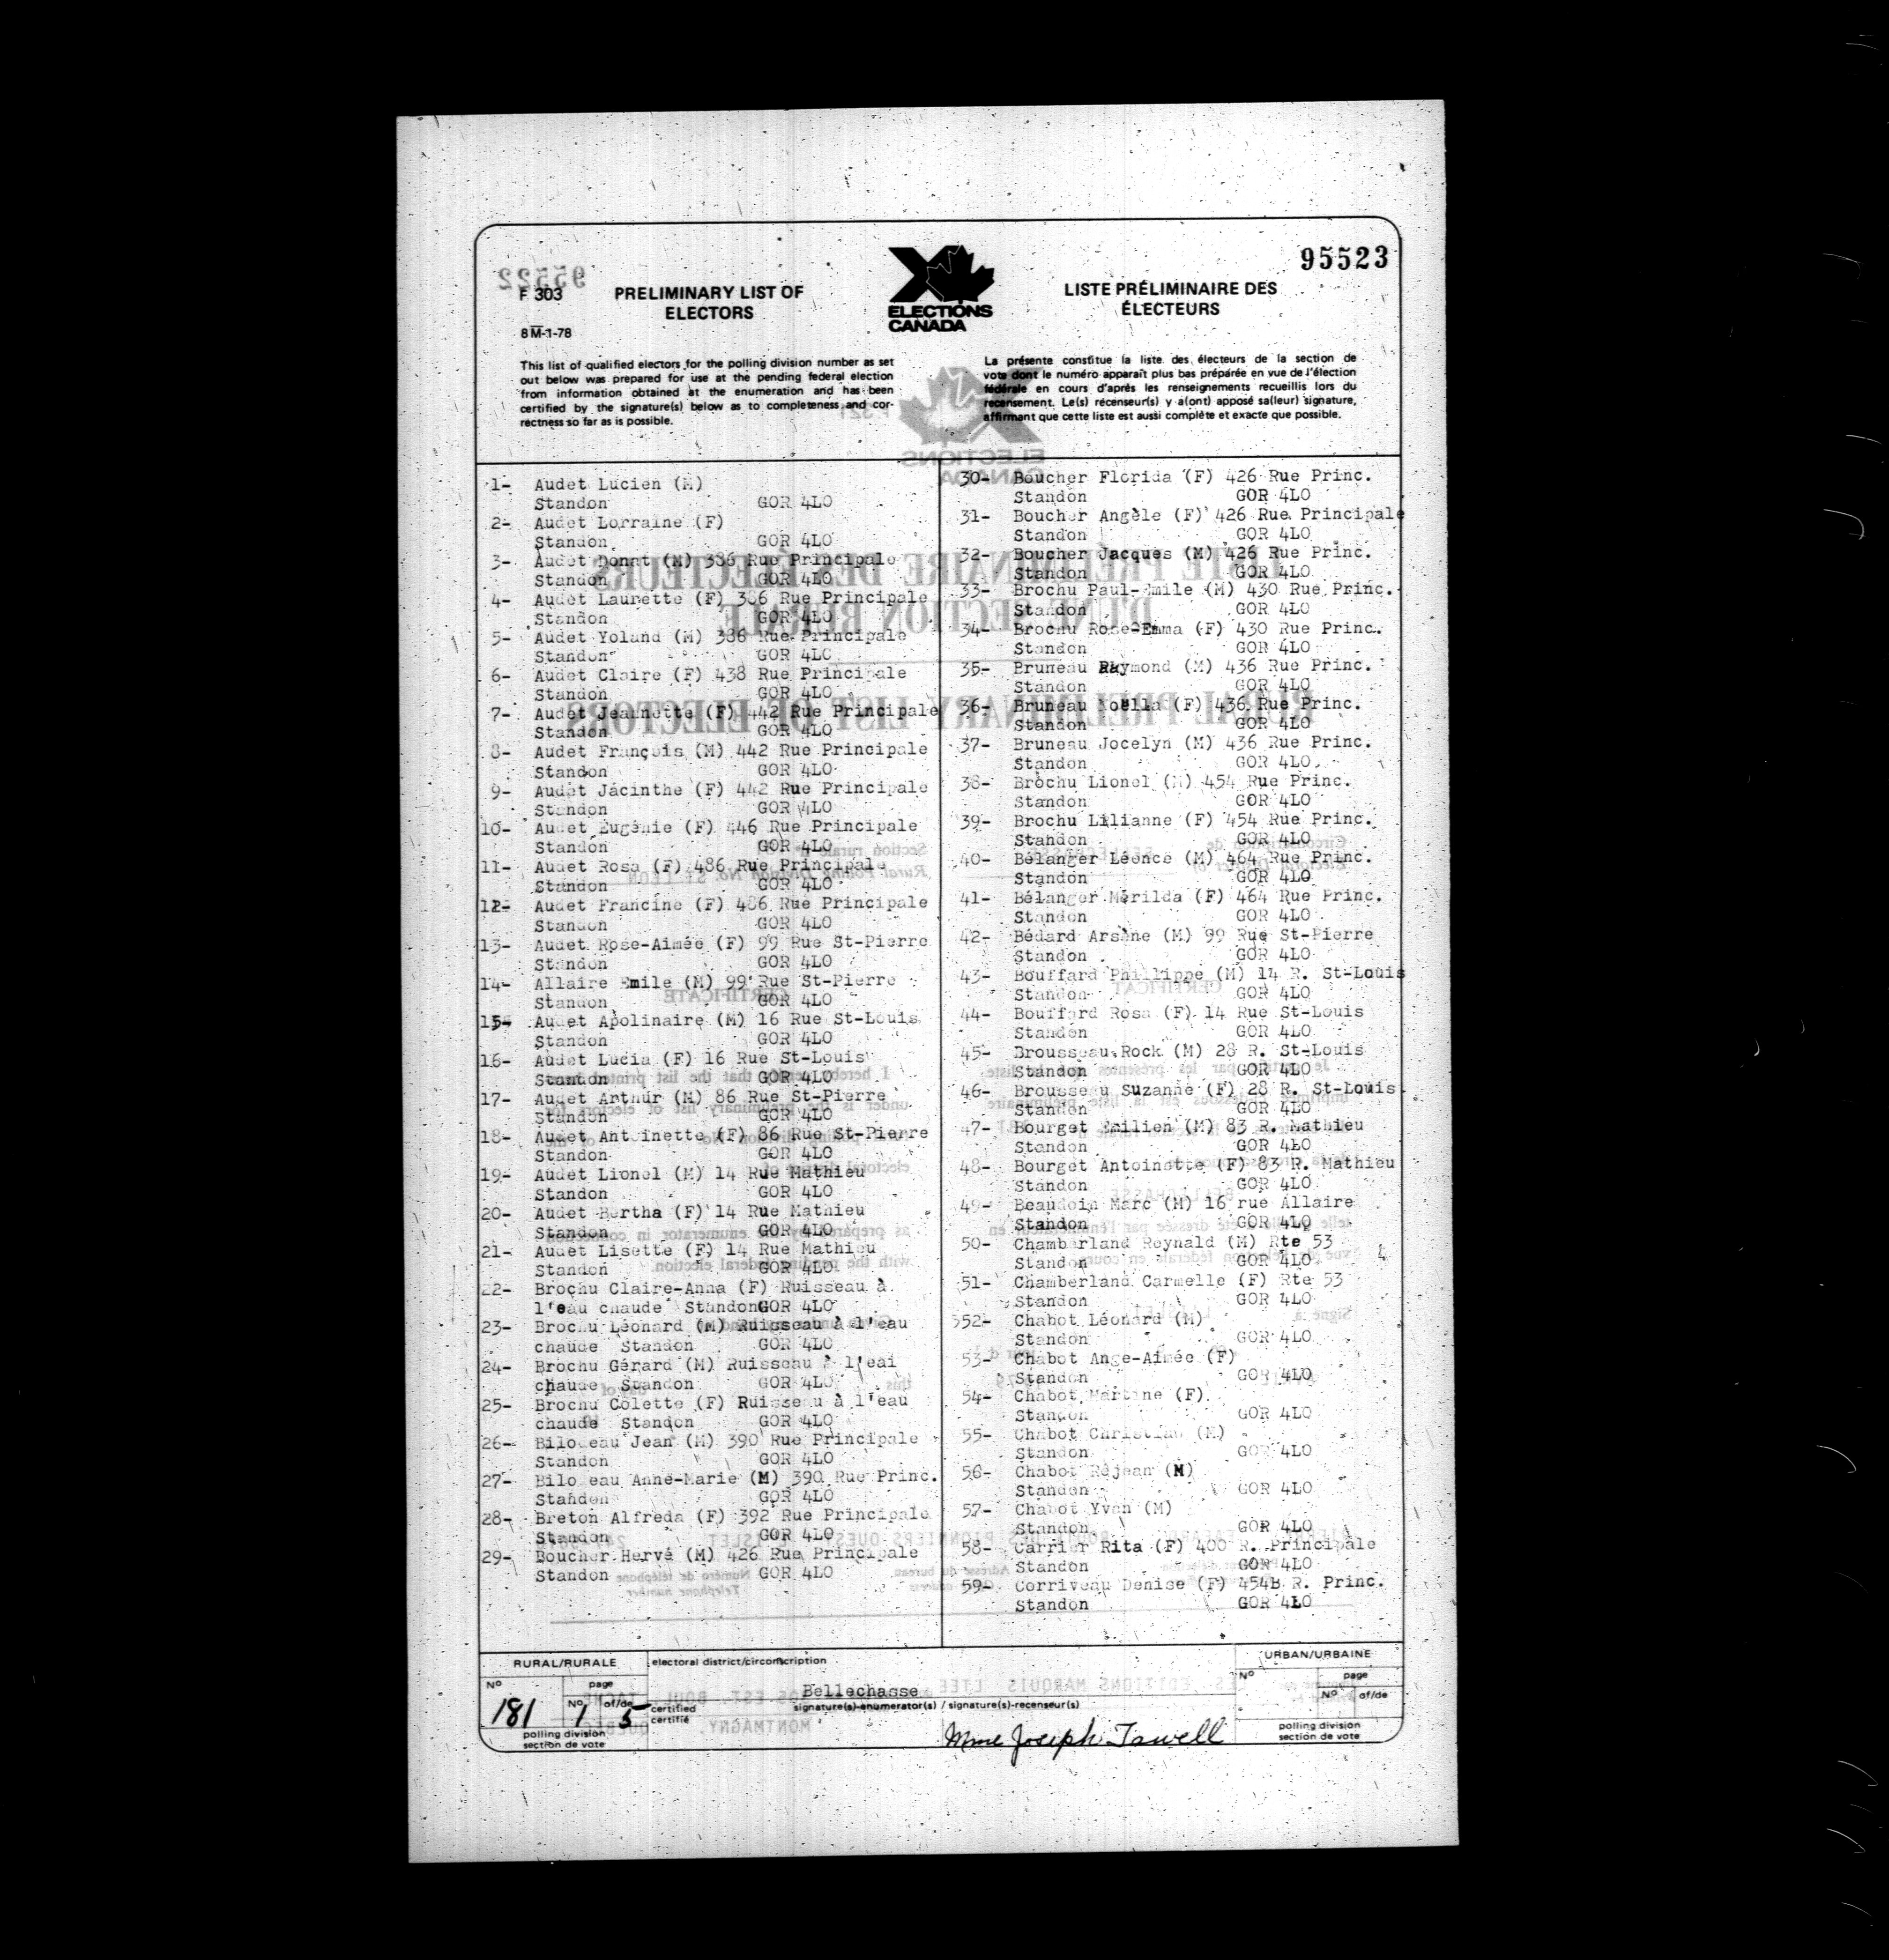 95523
F 303
PRELIMINARY LIST OF
ELECTORS
8M-1-78
ELECTIONS
CANADA
LISTE PRÉLIMINAIRE DES
ÉLECTEURS
This list of qualified electors for the polling division number as set
out below was prepared for use at the pending federal election
from information obtained at the enumeration and has been
certified by the signature(s) below as to completeness and cor-
rectness so far as is possible.
La présente constitue la liste des électeurs de la section de
vote dont le numéro apparaît plus bas préparée en vue de l'élection
fédérale en cours d'après les renseignements recueillis lors du
recensement. Le(s) récenseur(s) y a(ont) apposé sa(leur) signature,
affirmant que cette liste est aussi complète et exacte que possible.
1- Audet Lucien (M)
Standon GOR 4LO
2- Audet Lorraine (F)
Standon GOR 4LO
3- Audet Donat (M) 386 Rue Principale
Standon GOR 4LO
4- Audet Laurette (F) 386 Rue Principale
Standon GOR 4LO
5- Audet Yoland (M) 386 Rue Principale
Standon GOR 4LO
6- Audet Claire (F) 438 Rue Principale
Standon GOR 4LO
7- Audet Jeannette (F) 442 Rue Principale
Standon GOR 4LO
8- Audet François (M) 442 Rue Principale
Standon GOR 4LO
9- Audet Jacinthe (F) 442 Rue Principale
Standon GOR 4LO
10- Audet Eugénie (F) 446 Rue Principale
Standon GOR 4LO
11- Audet Rosa (F) 486 Rue Principale
Standon GOR 4LO
12- Audet Francine (F) 486 Rue Principale
Standon GOR 4LO
13- Audet Rose-Aimée (F) 99 Rue St-Pierre
Standon GOR 4LO
14- Allaire Emile (M) 99 Rue St-Pierre
Standon GOR 4LO
15- Audet Apolinaire (M) 16 Rue St-Louis
Standon GOR 4LO
16- Audet Lucia (F) 16 Rue St-Louis
Standon GOR 4LO
17- Audet Arthur (M) 86 Rue St-Pierre
Standon GOR 4LO
18- Audet Antoinette (F) 86 Rue St-Pierre
Standon GOR 4LO
19- Audet Lionel (M) 14 Rue Mathieu
Standon GOR 4LO
20- Audet Bertha (F) 14 Rue Mathieu
Standon GOR 4LO
21- Audet Lisette (F) 14 Rue Mathieu
Standon GOR 4LO
22- Brochu Claire-Anna (F) Ruisseau à
l'eau chaude Standon GOR 4LO
23- Brochu Léonard (M) Ruisseau à l'eau
chaude Standon GOR 4LO
24- Brochu Gérard (M) Ruisseau à l'eai
chaude Standon GOR 4LO
25- Brochu Colette (F) Ruisseau à l'eau
chaude Standon GOR 4LO
26- Bilodeau Jean (M) 390 Rue Principale
Standon GOR 4LO
27- Bilodeau Anne-Marie (M) 390 Rue Princ.
Standon GOR 4LO
28- Breton Alfreda (F) 392 Rue Principale
Standon GOR 4LO
29- Boucher Hervé (M) 426 Rue Principale
Standon GOR 4LO
30- Boucher Florida (F) 426 Rue Princ.
Standon GOR 4LO
31- Boucher Angèle (F) 426 Rue Principale
Standon GOR 4LO
32- Boucher Jacques (M) 426 Rue Princ.
Standon GOR 4LO
33- Brochu Paul-Emile (M) 430 Rue Princ.
Standon GOR 4LO
34- Brochu Rose-Emma (F) 430 Rue Princ.
Standon GOR 4LO
35- Bruneau Raymond (M) 436 Rue Princ.
Standon GOR 4LO
36- Bruneau Noëlla (F) 436 Rue Princ.
Standon GOR 4LO
37- Bruneau Jocelyn (M) 436 Rue Princ.
Standon GOR 4LO
38- Brochu Lionel (M) 454 Rue Princ.
Standon GOR 4LO
39- Brochu Lilianne (F) 454 Rue Princ.
Standon GOR 4LO
40- Bélanger Léonce (M) 464 Rue Princ.
Standon GOR 4LO
41- Bélanger Mérilda (F) 464 Rue Princ.
Standon GOR 4LO
42- Bédard Arsène (M) 99 Rue St-Pierre
Standon GOR 4LO
43- Bouffard Phillippe (M) 14 R. St-Louis
Standon GOR 4LO
44- Bouffard Rosa (F) 14 Rue St-Louis
Standon GOR 4LO
45- Brousseau Rock (M) 28 R. St-Louis
Standon GOR 4LO
46- Brousseau Suzanne (F) 28 R. St-Louis
Standon GOR 4LO
47- Bourget Emilien (M) 83 R. Mathieu
Standon GOR 4LO
48- Bourget Antoinette (F) 83 R. Mathieu
Standon GOR 4LO
49- Beaudoin Marc (M) 16 rue Allaire
Standon GOR 4LO
50- Chamberland Reynald (M) Rte 53
Standon GOR 4LO
51- Chamberland Carmelle (F) Rte 53
Standon GOR 4LO
552- Chabot Léonard (M)
Standon GOR 4LO
53- Chabot Ange-Aimée (F)
Standon GOR 4LO
54- Chabot Martine (F)
Standon GOR 4LO
55- Chabot Christian (M)
Standon GOR 4LO
56- Chabot Réjean (M)
Standon GOR 4LO
57- Chabot Yvan (M)
Standon GOR 4LO
58- Carrier Rita (F) 400 R. Principale
Standon GOR 4LO
59- Corriveau Denise (F) 454B R. Princ.
Standon GOR 4LO
RURAL/RURALE
No
181
page
No of/de
1 5
polling division
section de vote
electoral district/circonscription
Bellechasse
certified
certifié
signature(s)-enumerator(s) / signature(s)-recenseur(s)
Mme Joseph Tawell
URBAN/URBAINE
No
page
No of/de
polling division
section de vote